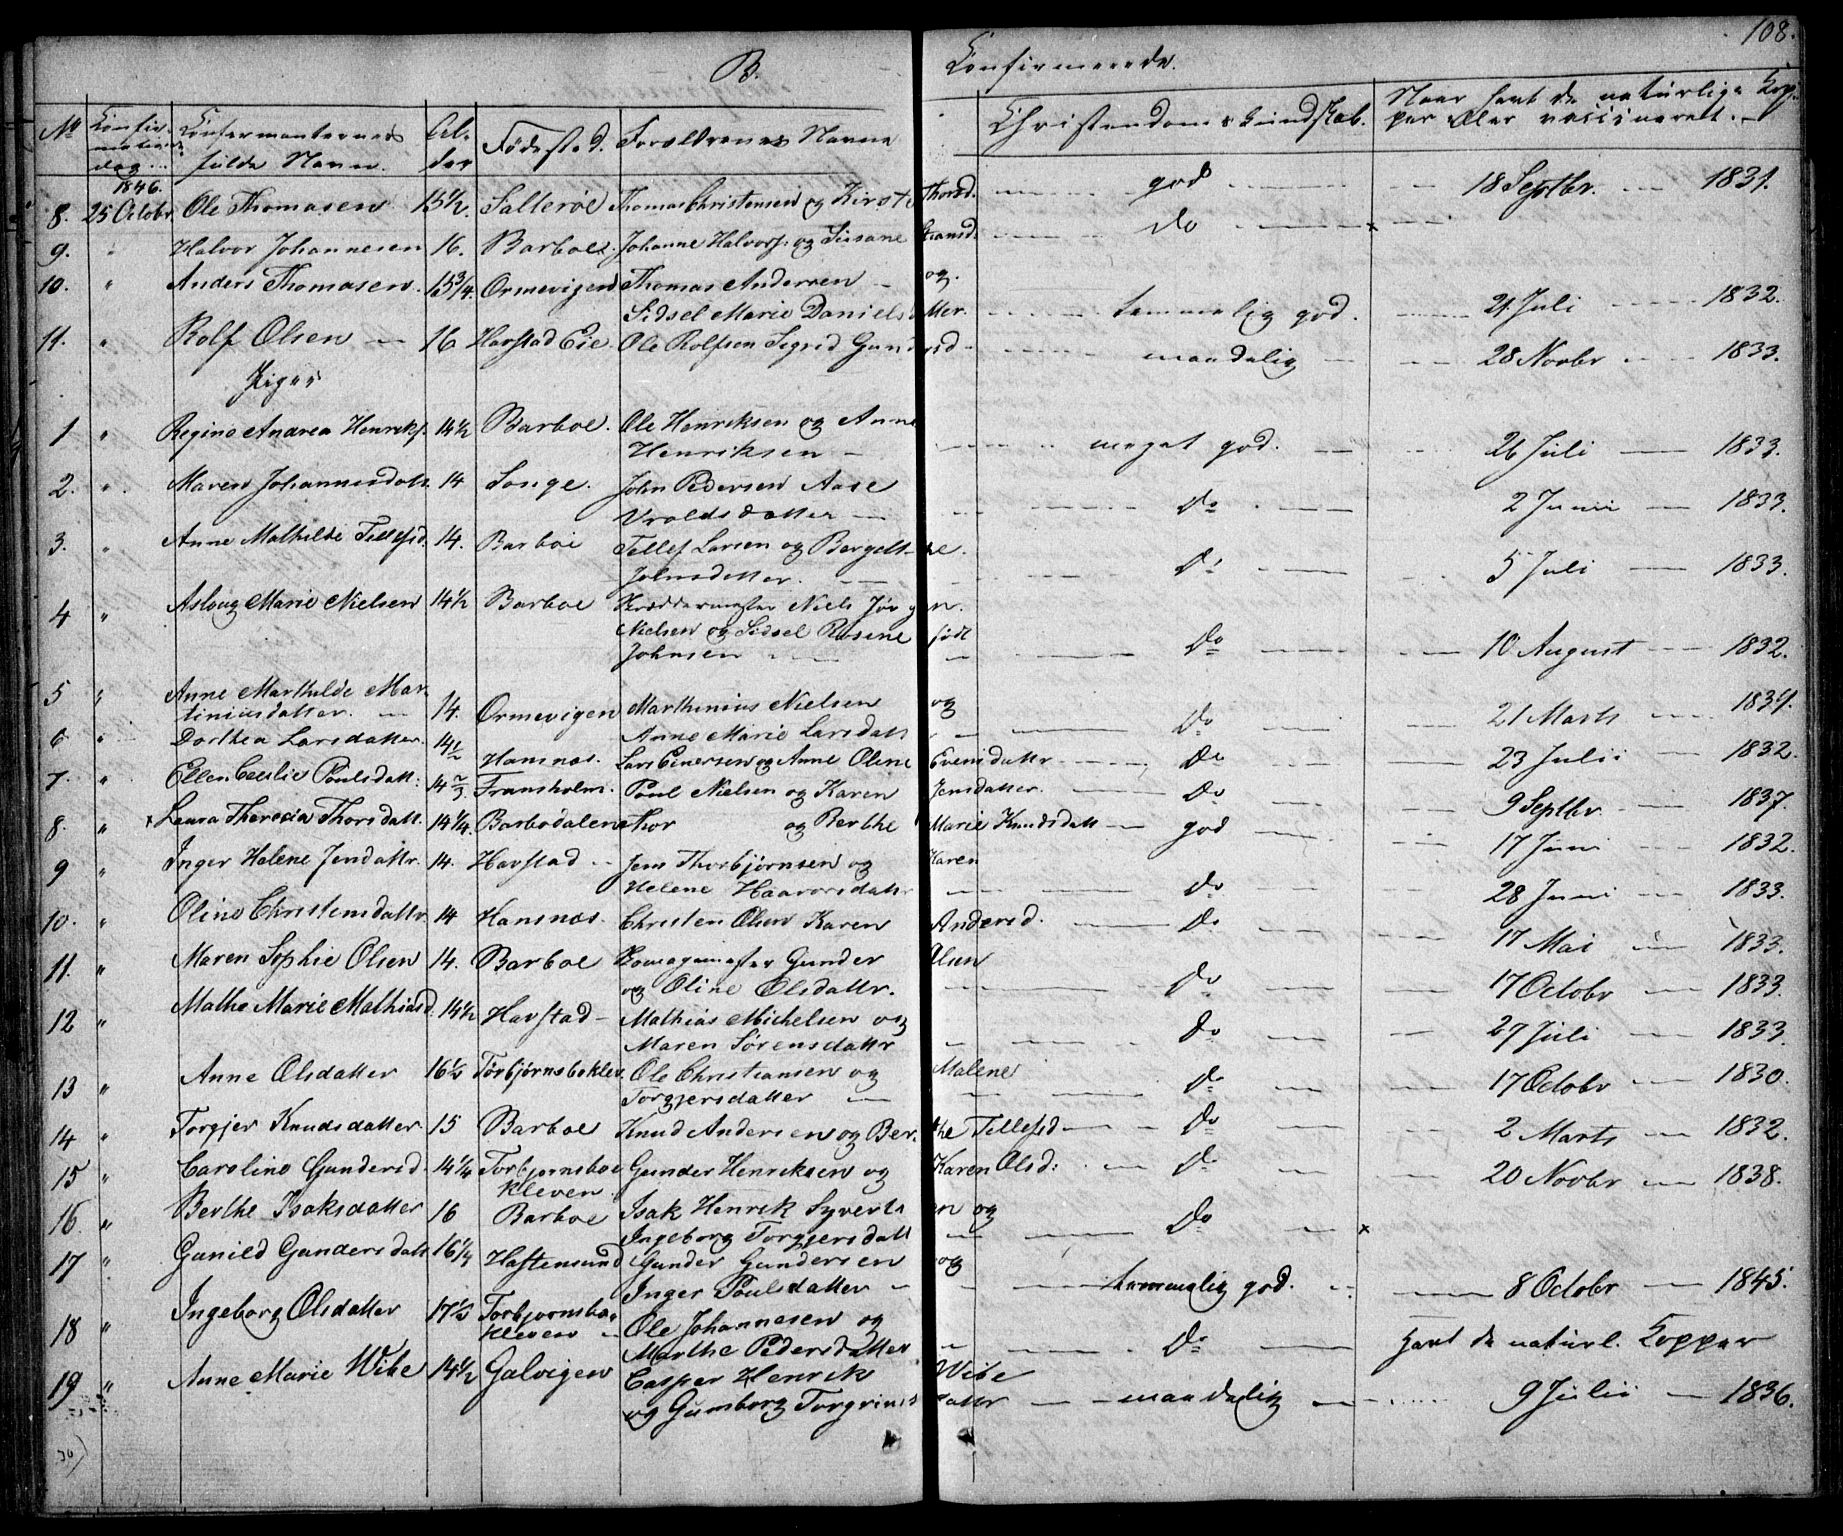 108.
B. Confirmerede.
No Confirmations dag. Confirmanternes fulde Navn. Alder Fødested. Forældrenes Navne Christendoms Kundskab. Naar havt de naturlige Kopper eller vaccineret.
1846.
8. 25 Octobr. Ole Thomasen 15 1/2. Salterøe Thomas Christensen og Kirst Thorsd. god 18 Septbr. 1831.
9. " Halvor Johannesen 16. Barboe. Johanne Halvors. og Susane do x
10. " Anders Thomasen. 15 3/4. Ormevigen Thomas Andersen og
Sidsel Marie Daniels tter. temmelig god. 21 Juli 1832.
11. " Rolf Olsen 16 Havstad Eie Ole Rolfsen Sigrid Gund rsd maadelig 28 Novbr 1833.
Piger
1 " Regine Andrea Henriks. 14 1/2 Barboe. Ole Henriksen og Anne
Henriksen meget god. 26 Juli 1833.
2. " Maren Johannesdatt. 14 Songe. John Pedersen Aase
Vroldsdatter do 2 Juni 1833.
3. " Anne Mathilde Tellefsd. 14. Barboe Tellef Larsen og Bergett he.
Johnsdatter. do 5 Juli 1833.
4 " Aslaug Marie Nielsen 14 1/2 Barboe Niels Jør gen.
Nielsen og Sidsel Rosine født
Johnsen do 10 August 1832.
5 " Anne Marthilde Mar-
tiniusdatter. 14. Ormevigen Marthinius Nielsen og
Anne Marie Larsdatt r do 21 Marts 1834.
6 " Dorthea Larsdatter. 14 1/2 Hansnæs. Lars Einersen og Anne Oline Evensdattr do 23 Julii 1832.
7. " Ellen Cecilie Poulsdatt: 14 2/3 Fransholm. Poul Nielsen og Karen Jensdatter. do 9 Septbr 1837.
8. " x Laura Theresia Thorsdatt. 14 1/4. Barbodalen Thor og Berthe Marie Knudsdatt god 17 Juni 1832.
9 " Inger Helene Jensdattr. 14. Havstad Jens Thorbjørnsen og Karen
Helene Haavorsdattr do 28 Juni 1833.
10. " Oline Christensdattr. 14 Hansnæs. Christen Olsen Karen Andersd. do 17 Mai 1833.
11. " Maren Sophie Olsen 14. Barboe Gunder Olsen
og Oline Olsdattr. do 17 Octobr 1833.
12 " Mathe Marie Mathiasd 14 1/2 Havstad Mathias Michelsen og
Maren Sørensdattr do 27 Juli 1833.
13 " Anne Olsdatter 16 1/2 Torbjørnsboklev. Ole Christiansen og Malene
Torgjersdatter do 17 Octobr 1830.
14 " Torgjer Knudsdatter 15 Barboe Knud Andersen og Ber the Tellefsd do 2 Marts 1832.
15 " Caroline Gundersd. 14 1/4 Torbjornsboe
kleven. Gunder Henriksen og Karen Olsd: do 20 Novbr 1838.
16 " Berthe Isaksdatter 16 Barboe Isak Henrik Syverts en og
Ingeborg Torgjersdatt do x
17 " Gunild Gundersdatt 16 1/4 Haftensund Gunder Gundersen og
Inger Poulsdatter temmelig god. 8 Octobr 1845.
18 " Ingeborg Olsdatter 17 1/2 Torbjornsboe
kleven Ole Johannesen og
Marthe Pedersdatter do Havt de naturl. Kopper
19 " Anne Marie Wibe 14 1/2 Galvigen Casper Henrik Wibe
og Gunborg Torgrims dattr maadelig 9 Julii 1836.
30)